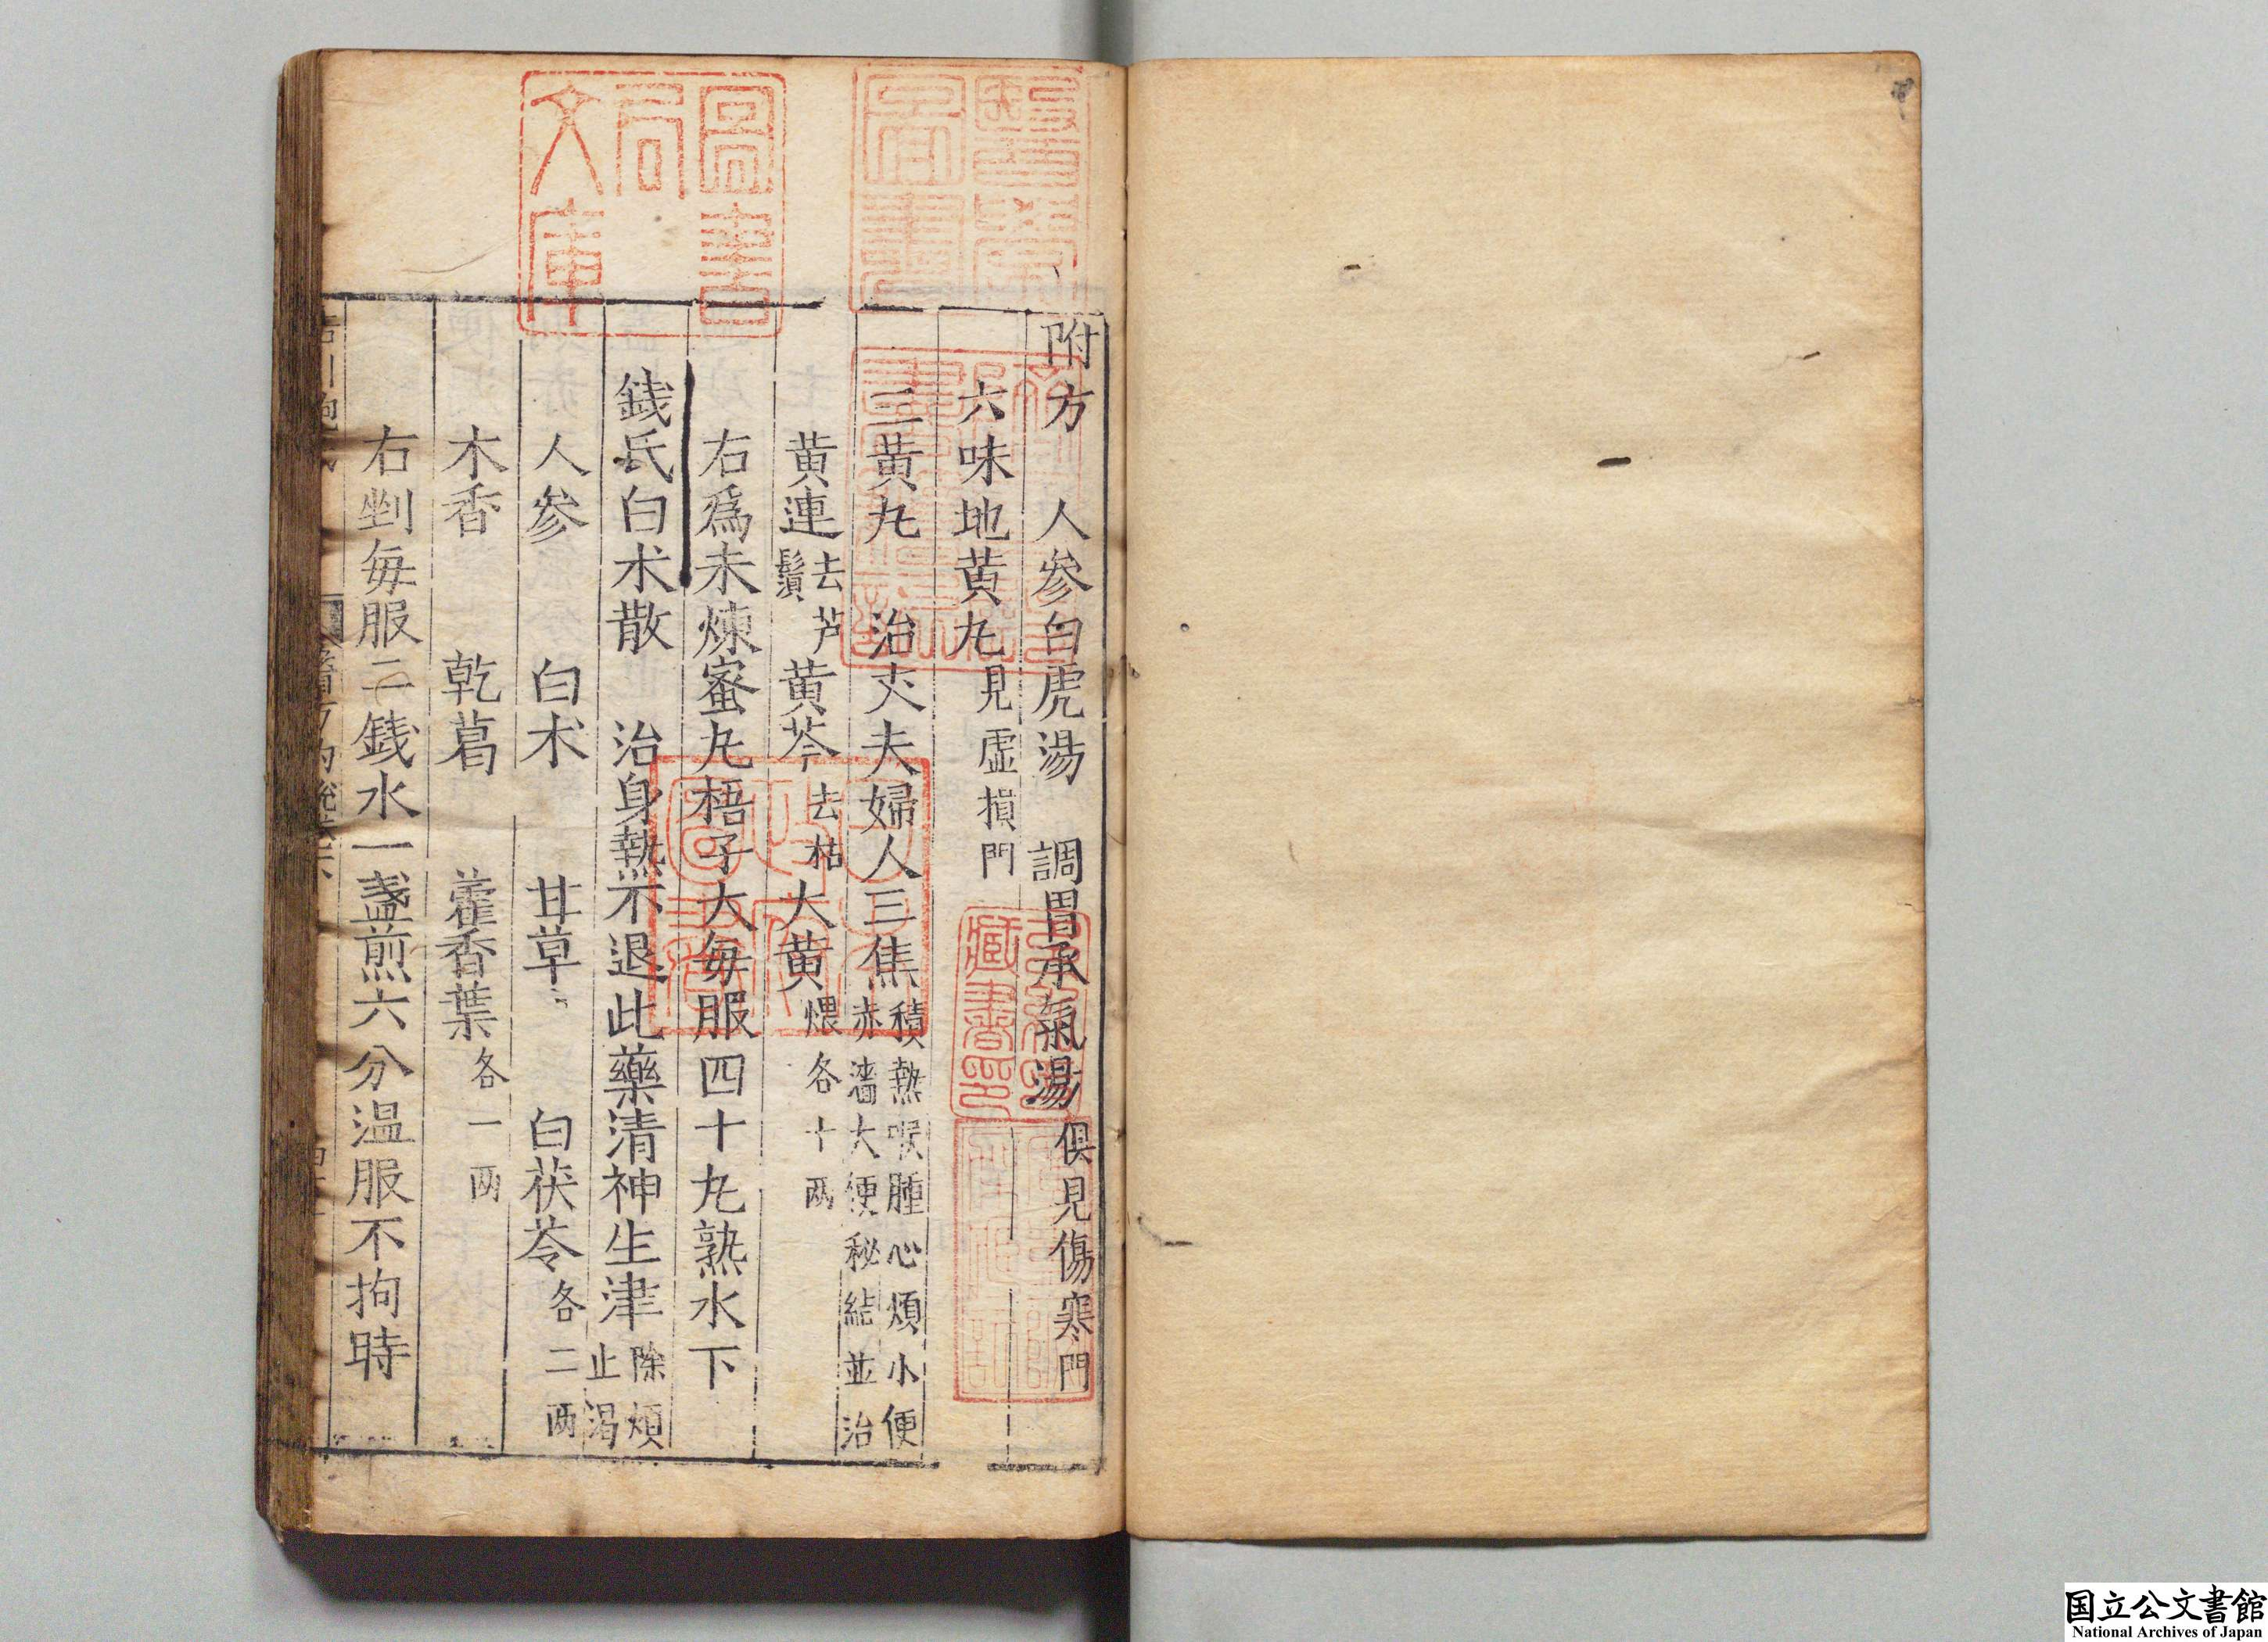 附方　人參白虎湯　調胃承氣湯俱見傷寒門
六味地黃九見虛損門
三黃九　治丈夫婦人三焦積熱喉腫心煩小便
赤濇大便秘結並治
黃連去芦
鬚黃芩去枯大黃煨各十兩
右爲末煉蜜九梧子大每服四十九熟水下
錢氏白朮散　治身熱不退此藥清神生津除煩
止渴
人參　白朮　甘草　白茯苓各二兩
木香　乾葛　藿香葉各一兩
右剉每服二錢水一盞煎六分溫服不拘時
圖書
局
文庫
醫學
圖書
藏書印
国立公文書館
National Archives of Japan